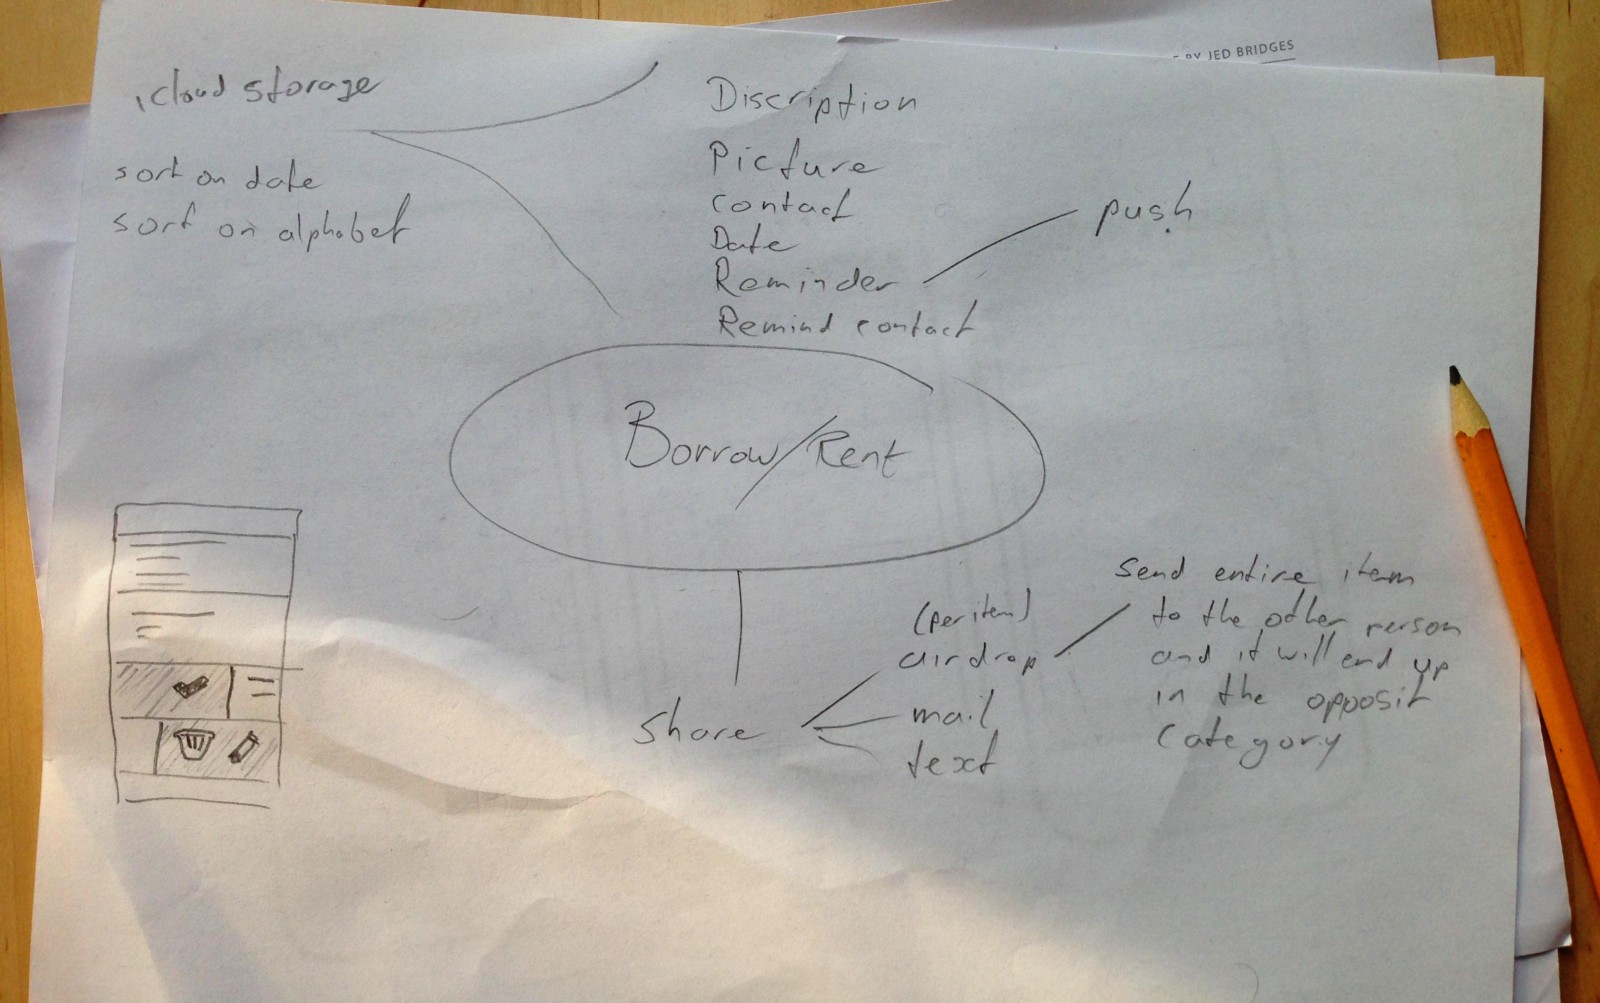 BY JED BRIDGES
icloud storage
sort on date
sort on alphabet
Discription
Picture
contact
Date
Reminder
push
Remind contact
Borrow/Rent
share
(per item)
airdrop
mail
text
send entire item
to the other person
and it will end up
in the opposit
category